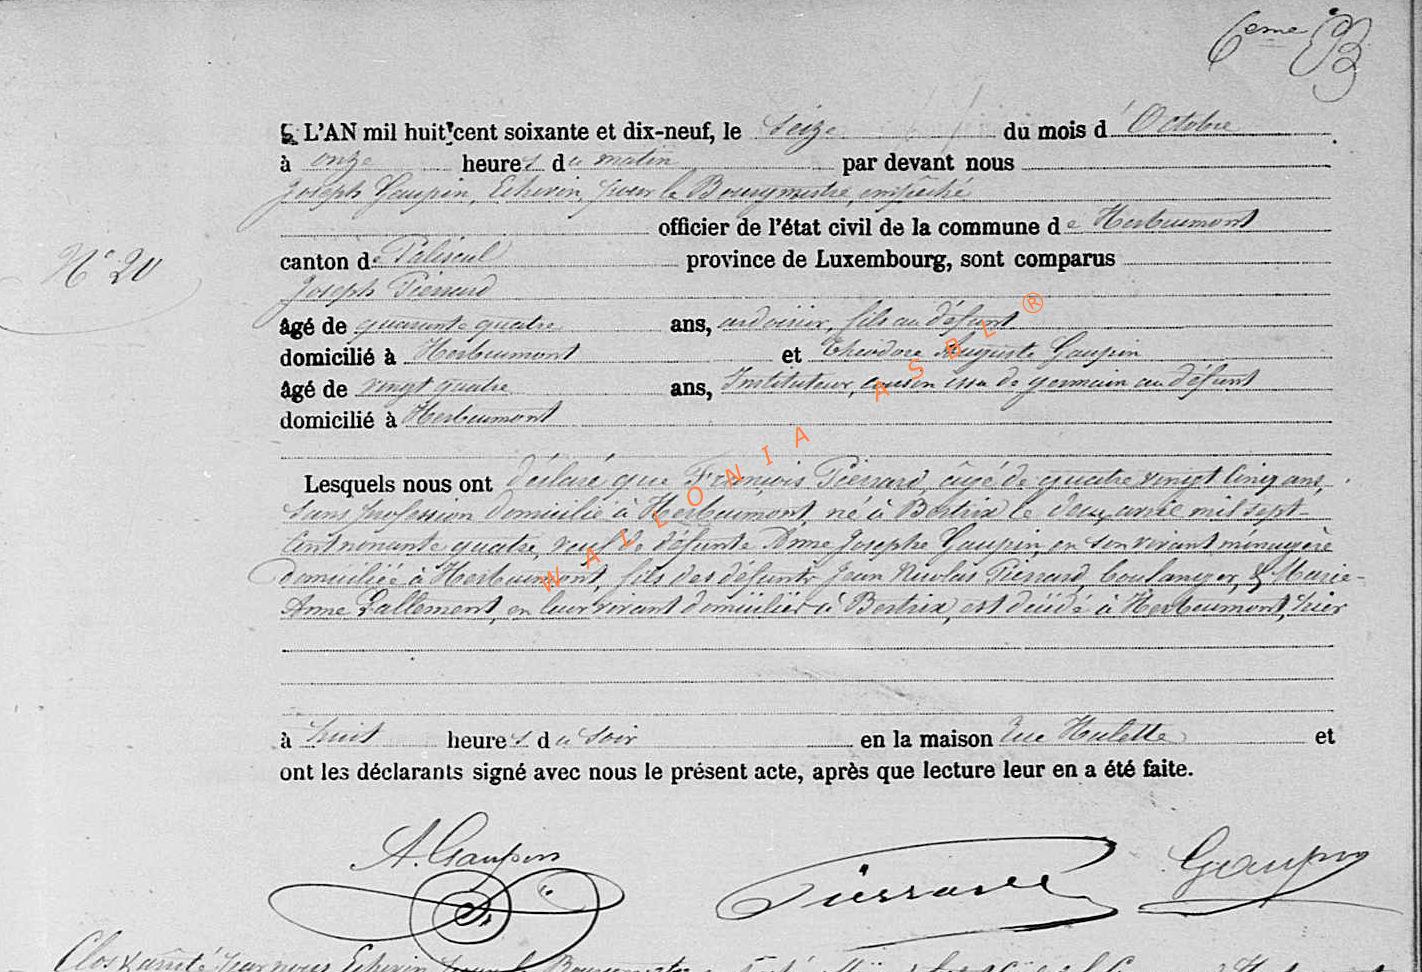 6ème B
L'AN mil huit cent soixante et dix-neuf, le seize du mois d'Octobre
à onze heures du matin par devant nous
Joseph Gaupin, Echevin, pour le Bourgmestre, empêché
officier de l'état civil de la commune de Herbeumont
N° 20
canton de Paliseul province de Luxembourg, sont comparus
Joseph Pierrard
âgé de quarante quatre ans, ardoisier, fils au défunt
domicilié à Herbeumont et Théodore Auguste Gaupin
âgé de vingt quatre ans, Instituteur, cousin issu de germain au défunt
domicilié à Herbeumont
Lesquels nous ont déclaré que François Pierrard, âgé de quatre vingt cinq ans,
sans profession domicilié à Herbeumont, né à Bertrix le deux avril mil sept-
cent nonante quatre, veuf de défunte Anne Josephe Gaupin, en son vivant ménagère
domiciliée à Herbeumont, fils des défunts Jean Nicolas Pierrard, boulanger, & Marie-
Anne Lallement, en leur vivant domiciliés à Bertrix, est décédé à Herbeumont, hier
à huit heures du soir en la maison rue Hulette et
ont les déclarants signé avec nous le présent acte, après que lecture leur en a été faite.
A. Gaupin Pierrard Gaupin
Clos & arrêté par nous Echevin pour le Bourgmestre
WALLONIA ASBL ®